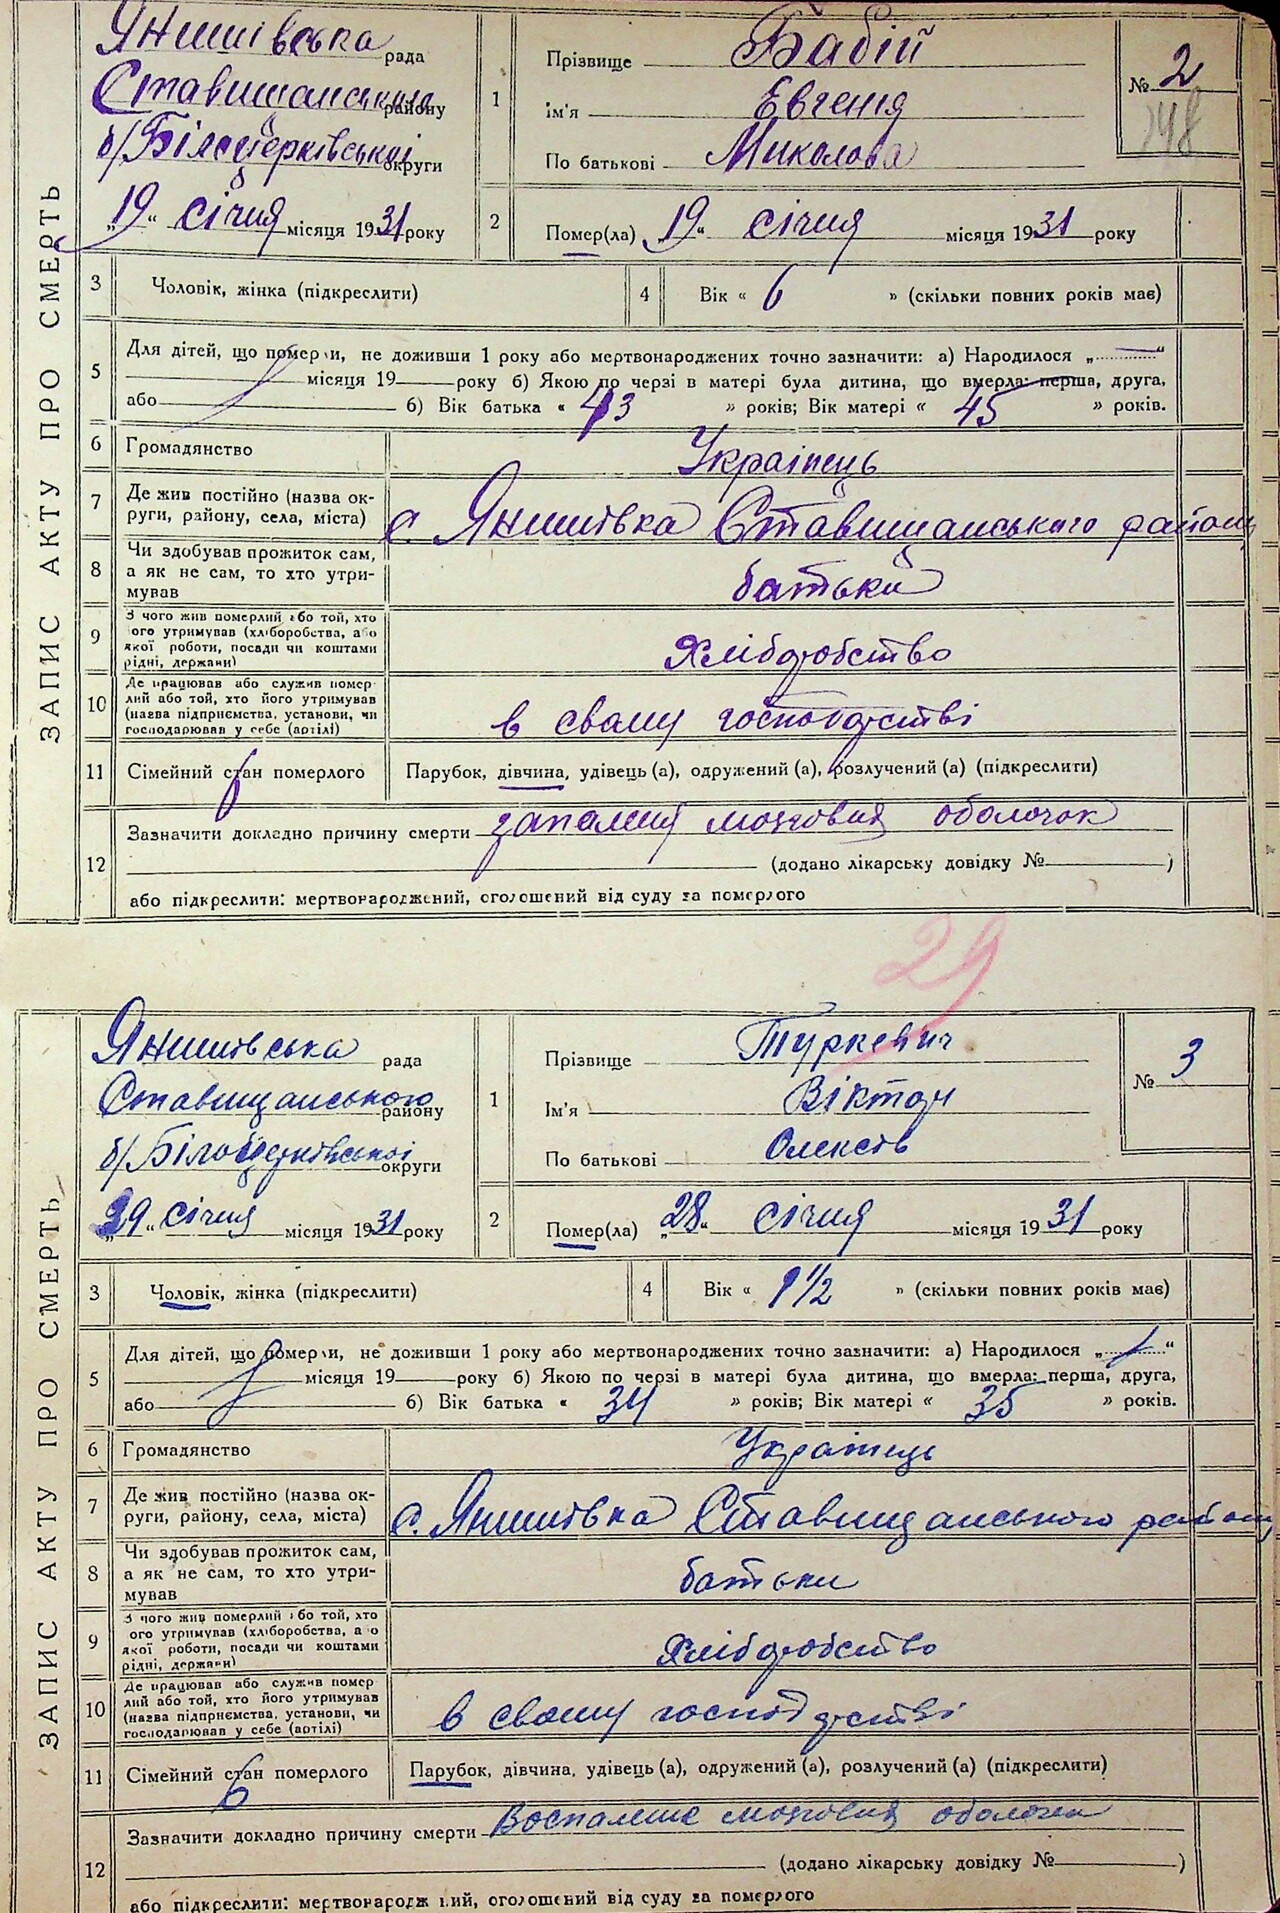 ЗАПИС АКТУ ПРО СМЕРТЬ
Янишівська рада
Ставищанського району
б/Білоцерківської округи
„19“ січня місяця 1931 року
1
Прізвище Бабій
ім'я Евгенія
По батькові Миколова
№ 2
148
2
Помер(ла) „19“ січня місяця 1931 року
3 Чоловік, жінка (підкреслити)
4 Вік « 6 » (скільки повних років має)
5 Для дітей, що померли, не доживши 1 року або мертвонароджених точно зазначити: а) Народилося „ “
місяця 19 року б) Якою по черзі в матері була дитина, що вмерла: перша, друга,
або б) Вік батька « 43 » років; Вік матері « 45 » років.
6 Громадянство Українець
7 Де жив постійно (назва ок-
руги, району, села, міста) с. Янишівка Ставищанського району
8 Чи здобував прожиток сам,
а як не сам, то хто утри-
мував батьки
9 З чого жив померлий або той, хто
ого утримував (хліборобства, або
якої роботи, посади чи коштами
рідні, держави) Хліборобство
10 Де працював або служив помер-
лий або той, хто його утримував
(назва підприємства, установи, чи
господарював у себе (артілі) в свому господарстві
11 Сімейний стан померлого Парубок, дівчина, удівець (а), одружений (а), розлучений (а) (підкреслити)
12 Зазначити докладно причину смерти запалення мозговия оболочок
(додано лікарську довідку № )
або підкреслити: мертвонароджений, оголошений від суду за померлого
29
ЗАПИС АКТУ ПРО СМЕРТЬ
Янишівська рада
Ставищанського району
б/Білоцерківської округи
„29“ січня місяця 1931 року
1
Прізвище Туркевич
Ім'я Віктор
По батькові Олексів
№ 3
2
Помер(ла) „28“ січня місяця 1931 року
3 Чоловік, жінка (підкреслити)
4 Вік « 1 1/2 » (скільки повних років має)
5 Для дітей, що померли, не доживши 1 року або мертвонароджених точно зазначити: а) Народилося „ “
місяця 19 року б) Якою по черзі в матері була дитина, що вмерла: перша, друга,
або б) Вік батька « 34 » років; Вік матері « 35 » років.
6 Громадянство Українець
7 Де жив постійно (назва ок-
руги, району, села, міста) с. Янишівка Ставищанського району
8 Чи здобував прожиток сам,
а як не сам, то хто утри-
мував батьки
9 З чого жив померлий або той, хто
ого утримував (хліборобства, а о
якої роботи, посади чи коштами
рідні, держави) Хліборобство
10 Де працював або служив помер
лий або той, хто його утримував
(назва підприємства, установи, чи
господарював у себе (артілі) в свому господарстві
11 Сімейний стан померлого Парубок, дівчина, удівець (а), одружений (а), розлучений (а) (підкреслити)
12 Зазначити докладно причину смерти Воспаление мозговия оболочки
(додано лікарську довідку № )
або підкреслити: мертвонародж ний, оголошений від суду за померлого